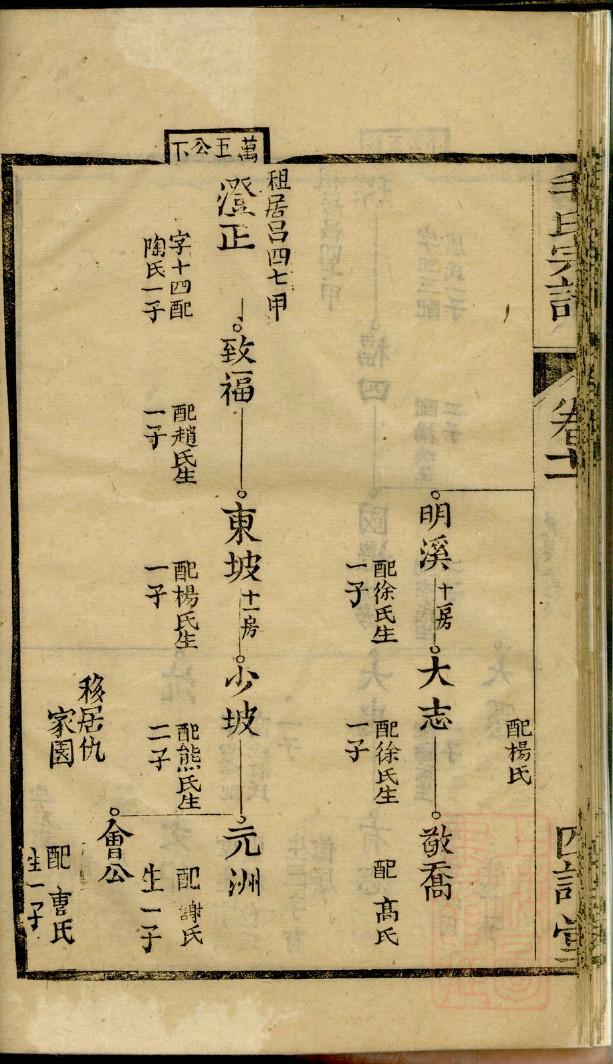 毛氏宗譜
卷十一
四詩堂
萬五公下
明溪
十房
配徐氏生
一子
大志
配徐氏生
一子
敬喬
配楊氏
配高氏
租居呂四七甲
澄正
字十四配
陶氏一子
致福
配趙氏生
一子
東坡
十一房
配楊氏生
一子
少坡
配熊氏生
二子
元洲
配謝氏
生一子
會公
移居仇
家園
配曹氏
生一子